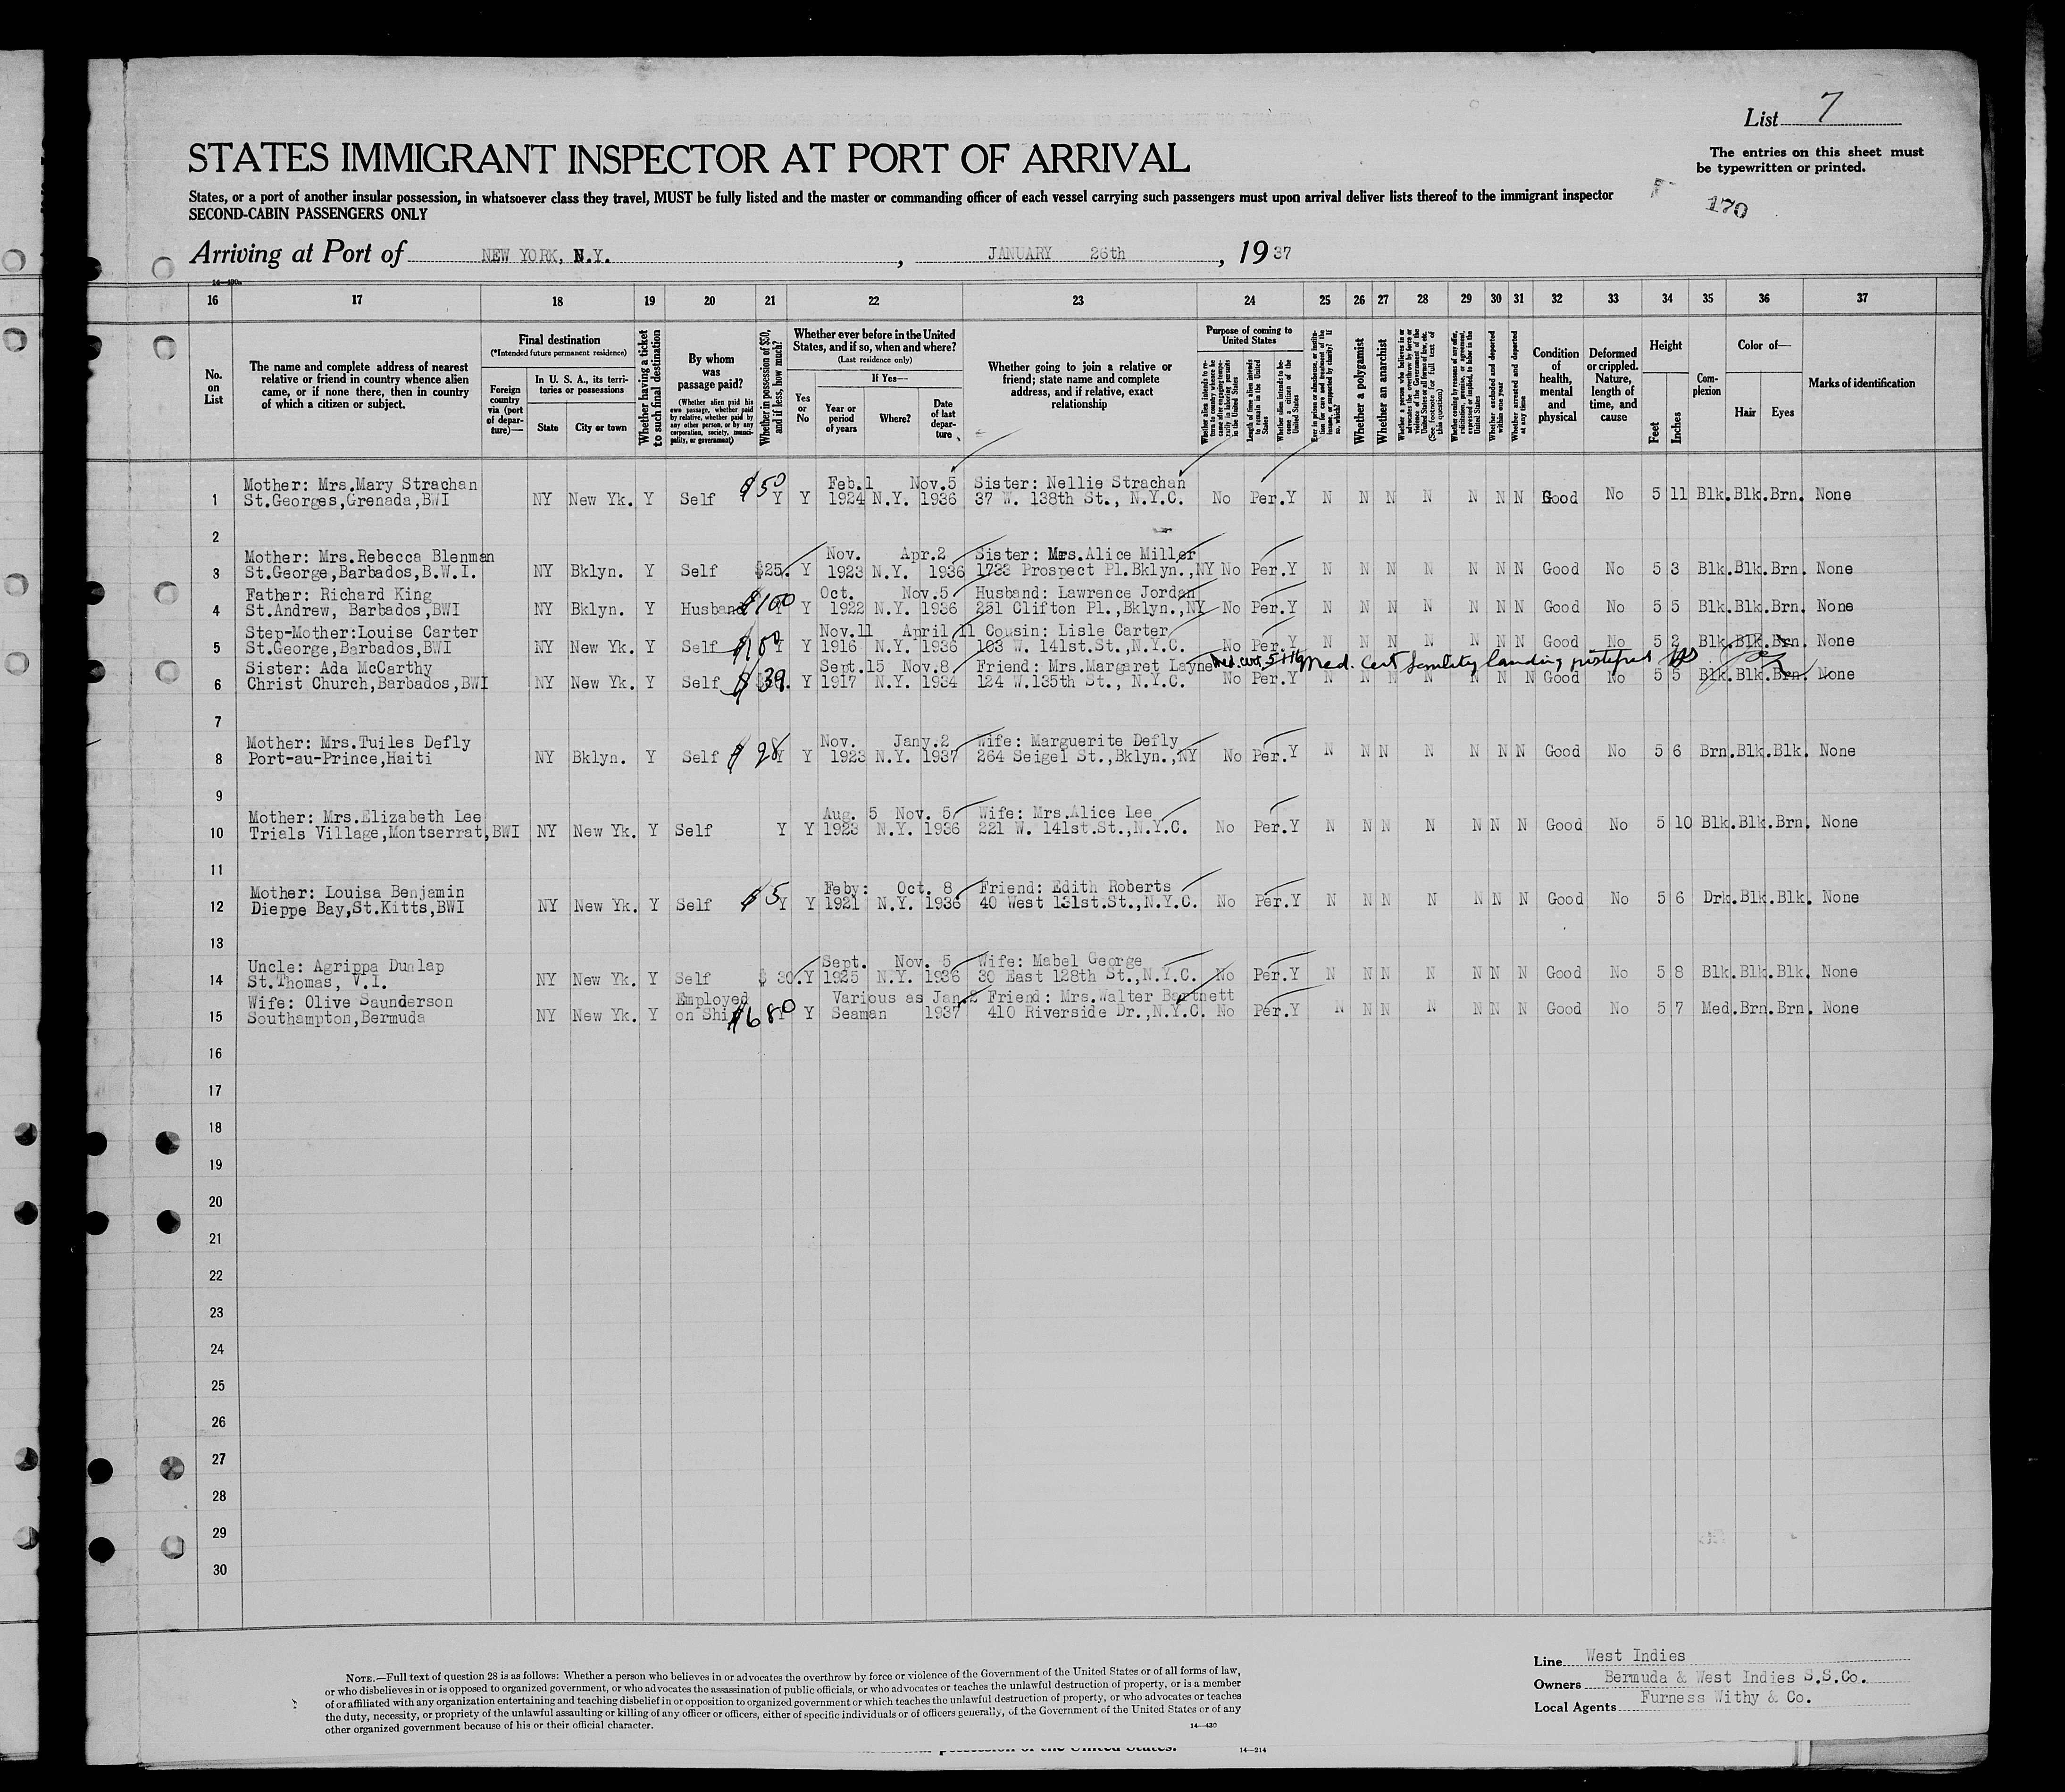 List 7
STATES IMMIGRANT INSPECTOR AT PORT OF ARRIVAL
The entries on this sheet must
be typewritten or printed.
States, or a port of another insular possession, in whatsoever class they travel, MUST be fully listed and the master or commanding officer of each vessel carrying such passengers must upon arrival deliver lists thereof to the immigrant inspector
SECOND-CABIN PASSENGERS ONLY
170
Arriving at Port of NEW YORK, N.Y. , JANUARY 26th , 1937
16 17 18 19 20 21 22 23 24 25 26 27 28 29 30 31 32 33 34 35 36 37
No. on List
The name and complete address of nearest relative or friend in country whence alien came, or if none there, then in country of which a citizen or subject.
Final destination
(*Intended future permanent residence)
Foreign country via (port of departure)—
In U. S. A., its territories or possessions
State
City or town
Whether having a ticket to such final destination
By whom was passage paid?
(Whether alien paid his own passage, whether paid by relative, whether paid by any other person, or by any corporation, society, municipality, or government)
Whether in possession of $50, and if less, how much?
Whether ever before in the United States, and if so, when and where?
(Last residence only)
Yes or No
If Yes—
Year or period of years
Where?
Date of last departure
Whether going to join a relative or friend; state name and complete address, and if relative, exact relationship
Purpose of coming to United States
Length of time alien intends to remain in the United States
Whether alien intends to become a citizen of the United States
Whether a polygamist
Whether an anarchist
Whether excluded and deported within one year
Whether arrested and deported at any time
Condition of health, mental and physical
Deformed or crippled. Nature, length of time, and cause
Height
Feet
Inches
Complexion
Color of—
Hair
Eyes
Marks of identification
Mother: Mrs.Mary Strachan $50 Feb.1 Nov.5 Sister: Nellie Strachan
1 St.Georges,Grenada,BWI NY New Yk. Y Self Y Y 1924 N.Y. 1936 37 W. 138th St., N.Y.C. No Per.Y N N N N N N N Good No 5 11 Blk.Blk.Brn. None
2
Mother: Mrs.Rebecca Blenman Nov. Apr.2 Sister: Mrs.Alice Miller
3 St.George,Barbados,B.W.I. NY Bklyn. Y Self $25. Y 1923 N.Y. 1936 1733 Prospect Pl.Bklyn.,NY No Per.Y N N N N N N N Good No 5 3 Blk.Blk.Brn. None
Father: Richard King Oct. Nov.5 Husband: Lawrence Jordan
4 St.Andrew, Barbados,BWI NY Bklyn. Y Husband $100 Y Y 1922 N.Y. 1936 251 Clifton Pl.,Bklyn.,NY No Per.Y N N N N N N N Good No 5 5 Blk.Blk.Brn. None
Step-Mother:Louise Carter Nov.11 April 11 Cousin: Lisle Carter
5 St.George,Barbados,BWI NY New Yk. Y Self Y Y 1916 N.Y. 1936 103 W. 141st.St.,N.Y.C. No Per.Y N N N N N N N Good No 5 2 Blk.Blk.Brn. None
Sister: Ada McCarthy Sept.15 Nov.8 Friend: Mrs.Margaret Layne Med. Cert Senility landing justified
6 Christ Church,Barbados,BWI NY New Yk. Y Self $39. Y 1917 N.Y. 1934 124 W.135th St., N.Y.C. No Per.Y N N N N N N N Good No 5 5 Blk.Blk.Brn. None
7
Mother: Mrs.Tuiles Defly Nov. Jany.2 Wife: Marguerite Defly
8 Port-au-Prince,Haiti NY Bklyn. Y Self $ 28 Y Y 1923 N.Y. 1937 264 Seigel St.,Bklyn.,NY No Per.Y N N N N N N N Good No 5 6 Brn.Blk.Blk. None
9
Mother: Mrs.Elizabeth Lee Aug. 5 Nov. 5 Wife: Mrs.Alice Lee
10 Trials Village,Montserrat,BWI NY New Yk. Y Self Y Y 1923 N.Y. 1936 221 W. 141st.St.,N.Y.C. No Per.Y N N N N N N N Good No 5 10 Blk.Blk.Brn. None
11
Mother: Louisa Benjamin Feby: Oct. 8 Friend: Edith Roberts
12 Dieppe Bay,St.Kitts,BWI NY New Yk. Y Self $5 Y Y 1921 N.Y. 1936 40 West 131st.St.,N.Y.C. No Per.Y N N N N N N N Good No 5 6 Drk.Blk.Blk. None
13
Uncle: Agrippa Dunlap Sept. Nov. 5 Wife: Mabel George
14 St.Thomas, V.I. NY New Yk. Y Self $ 30. Y 1925 N.Y. 1936 30 East 128th St.,N.Y.C. No Per.Y N N N N N N N Good No 5 8 Blk.Blk.Blk. None
Wife: Olive Saunderson Employed Various as Jan.2 Friend: Mrs.Walter Bartnett
15 Southampton,Bermuda NY New Yk. Y on Ship $680 Y Y Seaman 1937 410 Riverside Dr.,N.Y.C. No Per.Y N N N N N N N Good No 5 7 Med.Brn.Brn. None
16
17
18
19
20
21
22
23
24
25
26
27
28
29
30
NOTE.—Full text of question 28 is as follows: Whether a person who believes in or advocates the overthrow by force or violence of the Government of the United States or of all forms of law,
or who disbelieves in or is opposed to organized government, or who advocates the assassination of public officials, or who advocates or teaches the unlawful destruction of property, or is a member
of or affiliated with any organization entertaining and teaching disbelief in or opposition to organized government or which teaches the unlawful destruction of property, or who advocates or teaches
the duty, necessity, or propriety of the unlawful assaulting or killing of any officer or officers, either of specific individuals or of officers generally, of the Government of the United States or of any
other organized government because of his or their official character.
14—430
Line West Indies
Owners Bermuda & West Indies S.S.Co.
Local Agents Furness Withy & Co.
14—214